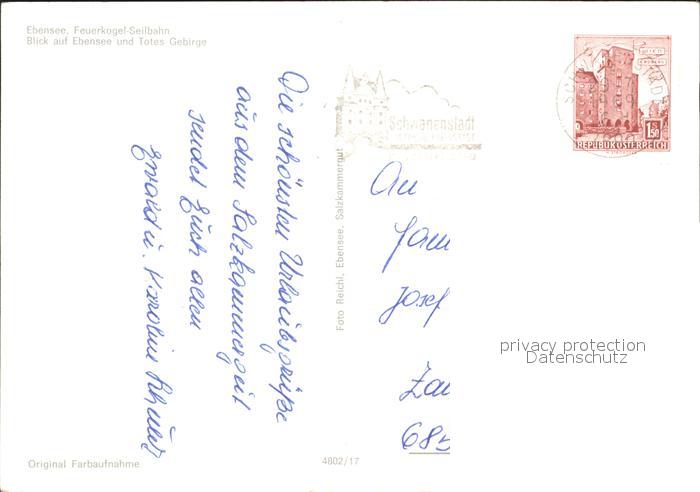 Ebensee, Feuerkogel-Seilbahn
Blick auf Ebensee und Totes Gebirge
Die schönsten Urlaubsgrüße
aus dem Salzkammergut
sendet Euch allen
u.
Foto Reichl, Ebensee, Salzkammergut
Schwanenstadt
WIEN
ERDBERG
1.50
REPUBLIK ÖSTERREICH
An
Fam
Josef
685
privacy protection
Datenschutz
Original Farbaufnahme
4802/17